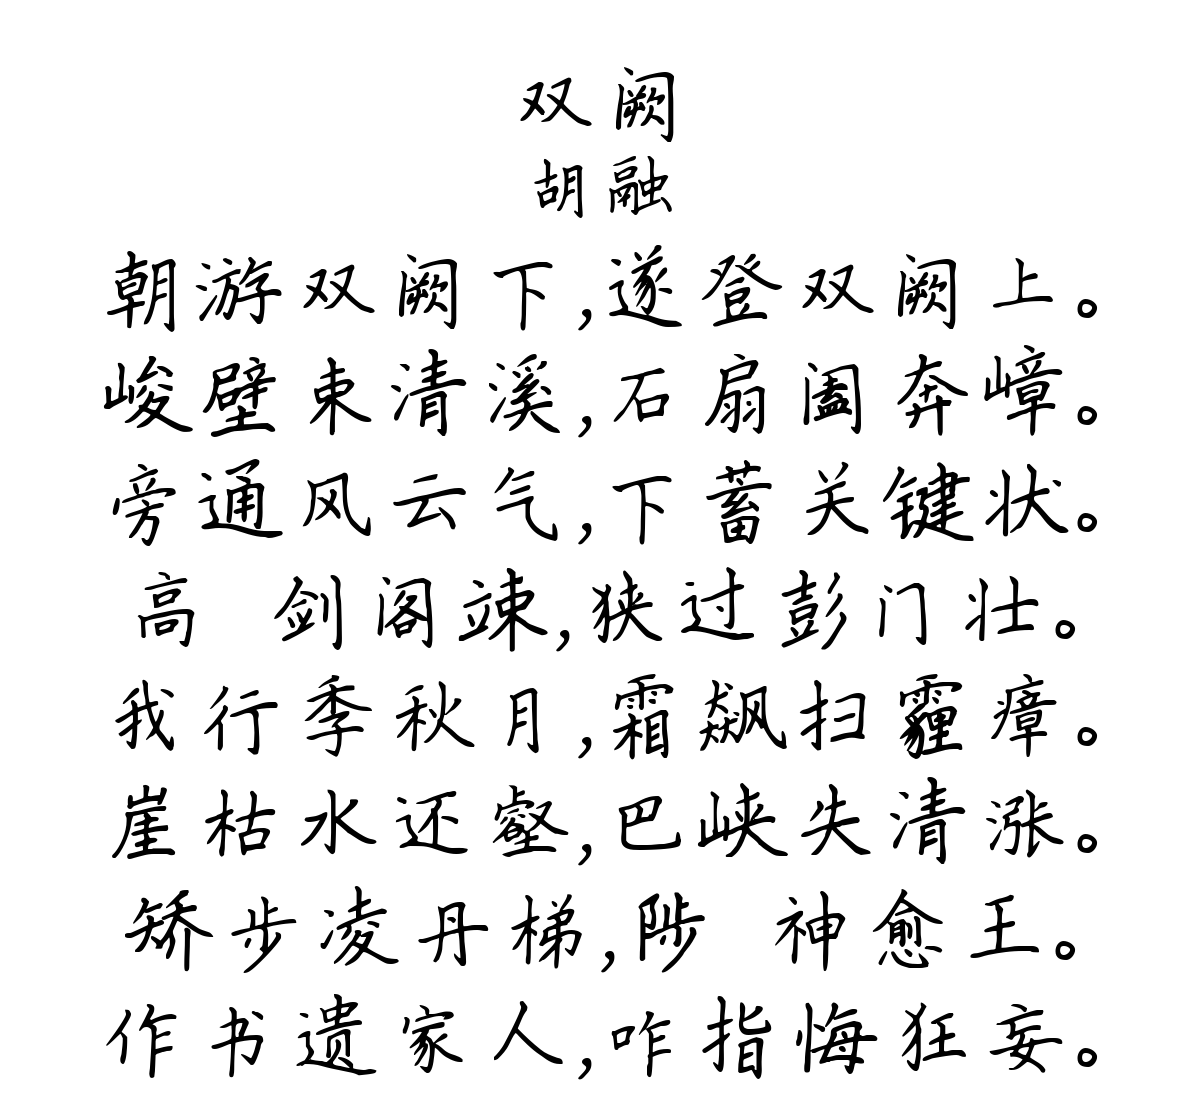 双阙
胡融
朝游双阙下,遂登双阙上。
峻壁束清溪,石扇阖奔嶂。
旁通风云气,下蓄关键状。
高 剑阁竦,狭过彭门壮。
我行季秋月,霜飙扫霾瘴。
崖枯水还壑,巴峡失清涨。
矫步凌丹梯,陟 神愈王。
作书遗家人,咋指悔狂妄。